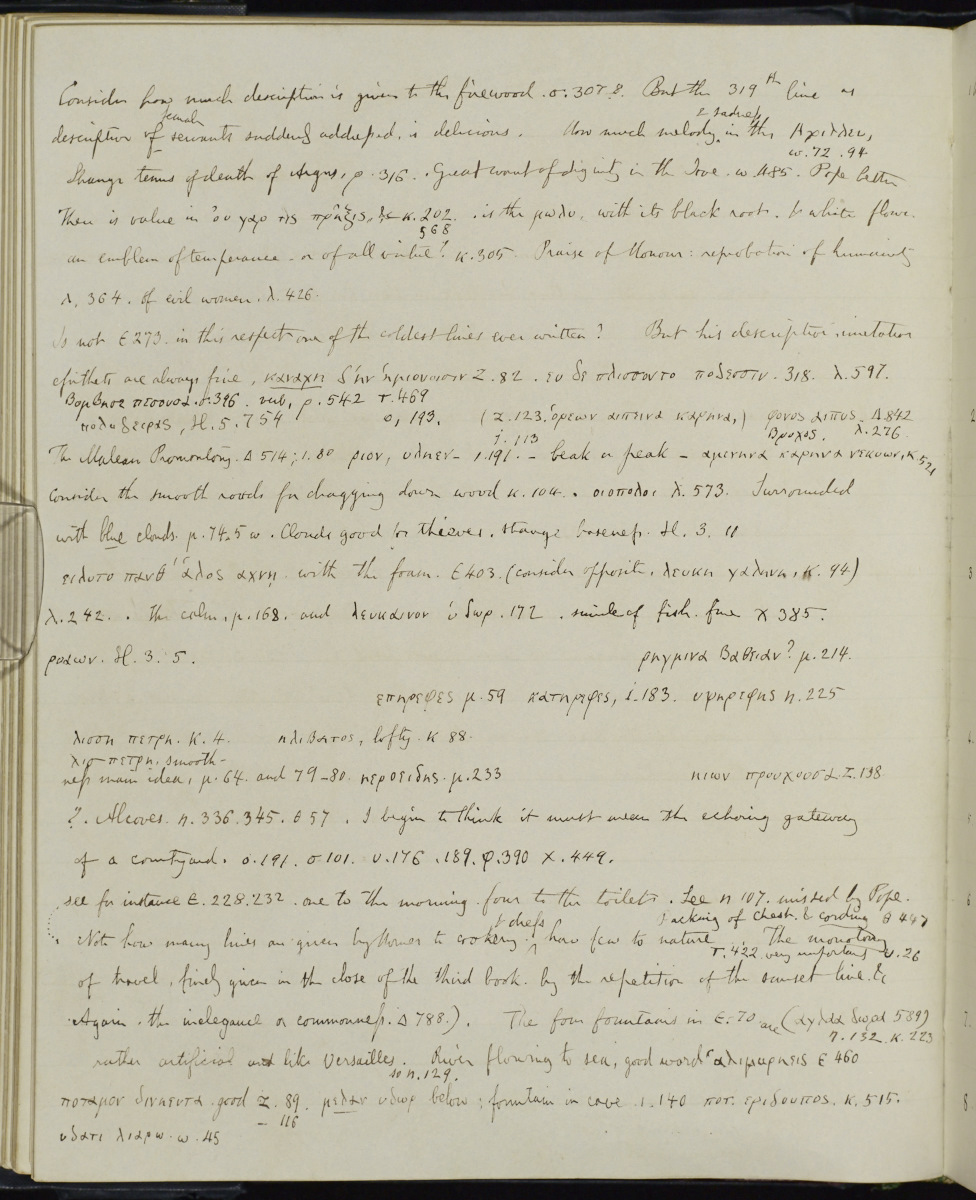 Consider how much description is given to the firewood. σ. 307.8. But the 319th line as
female & sadness
descriptive of servants suddenly addressed, is delicious. How much melody in the Αχιλλευ,
ω. 72. 94
Strange terms of death of Argus, ρ. 316. Great want of dignity in the Jove. ω. 485. Pope better
There is value in ὀυ γαρ τις πρῆξις, &c κ. 202. is the μωλυ, with its black root. & white flower.
568
an emblem of temperance - or of all virtue? κ. 305. Praise of Honour: reprobation of humanity
λ. 364. of evil women. λ. 426.
Is not Ε 273. in this respect one of the coldest lines ever written? But his descriptive imitative
epithets are always fine, καναχη δ'ην ἡμιονοιιν Ζ. 82. ευ δε πλισσοντο ποδεσσιν. 318. λ. 597.
βομβησε πεσουσα. σ. 396. ρ. 542 τ. 469
πολυδειρας, Il. 5. 754 ο, 193. (Ζ. 123. ὀρεων αιπεινα καρηνα,) φονος αιπυς. Δ 842
ι. 113 βροχος. λ. 276.
The Malean Promontory. Δ 514; ι. 80 ριον, υληεν - ι. 191. - beak or peak - αμενηνα καρηνα νεκυων, κ 521
Consider the smooth roads for dragging down wood κ. 104. οιοπολοι λ. 573. Surrounded
with blue clouds. μ. 74. 5 ω. Clouds good for thieves. strange baseness. Il. 3. 11
ειλυτο πανθ' ἁλος αχνη. with the foam. Ε 403. (consider opposite, λευκη γαληνη, κ. 94)
λ. 242. the calm. μ. 168. and λευκαινον ὑδωρ. 172. simile of fish. fine χ 385.
ροαων. Il. 3. 5. ρηγμινα βαθειαν? μ. 214.
επηρεφες μ. 59 κατηρεφες, ι. 183. υψηρεφης η. 225
λισση πετρη. κ. 4. ηλιβατος, lofty. κ 88.
λισ- πετρη, smooth-
ness main idea, μ. 64. and 79-80. ηεροειδης. μ. 233 κιων προυχουσα. Ζ. 138.
?. Alcoves. η. 336. 345. θ 57. I begin to think it must mean the echoing gateway
of a courtyard. ο. 191. σ 101. υ. 176. 189. φ. 390 χ. 449.
see for instance Ε. 228. 232. one to the morning. four to the toilet. See η 107. missed by Pope.
& dress packing of chest. & cording θ 447
Note how many lines are given by Homer to cookery. how few to nature. The monotony
τ. 422 very important υ. 26
of travel, finely given in the close of the third book. by the repetition of the sunset line. &c
Again. the inelegance or commonness. Δ 788.). The four fountains in Ε. 70 are (αγλαα δωρα 589)
η. 132. κ. 223
rather artificial and like Versailles. River flowing to sea, good word ἁλιμυρηεις Ε 460
so η. 129.
ποταμον δινηεντα. good Ζ. 89. μελαν υδωρ below; fountain in cave ι. 140 ποτ. εριδουπος. κ. 515.
- 116
υδατι λιαρω. ω. 45